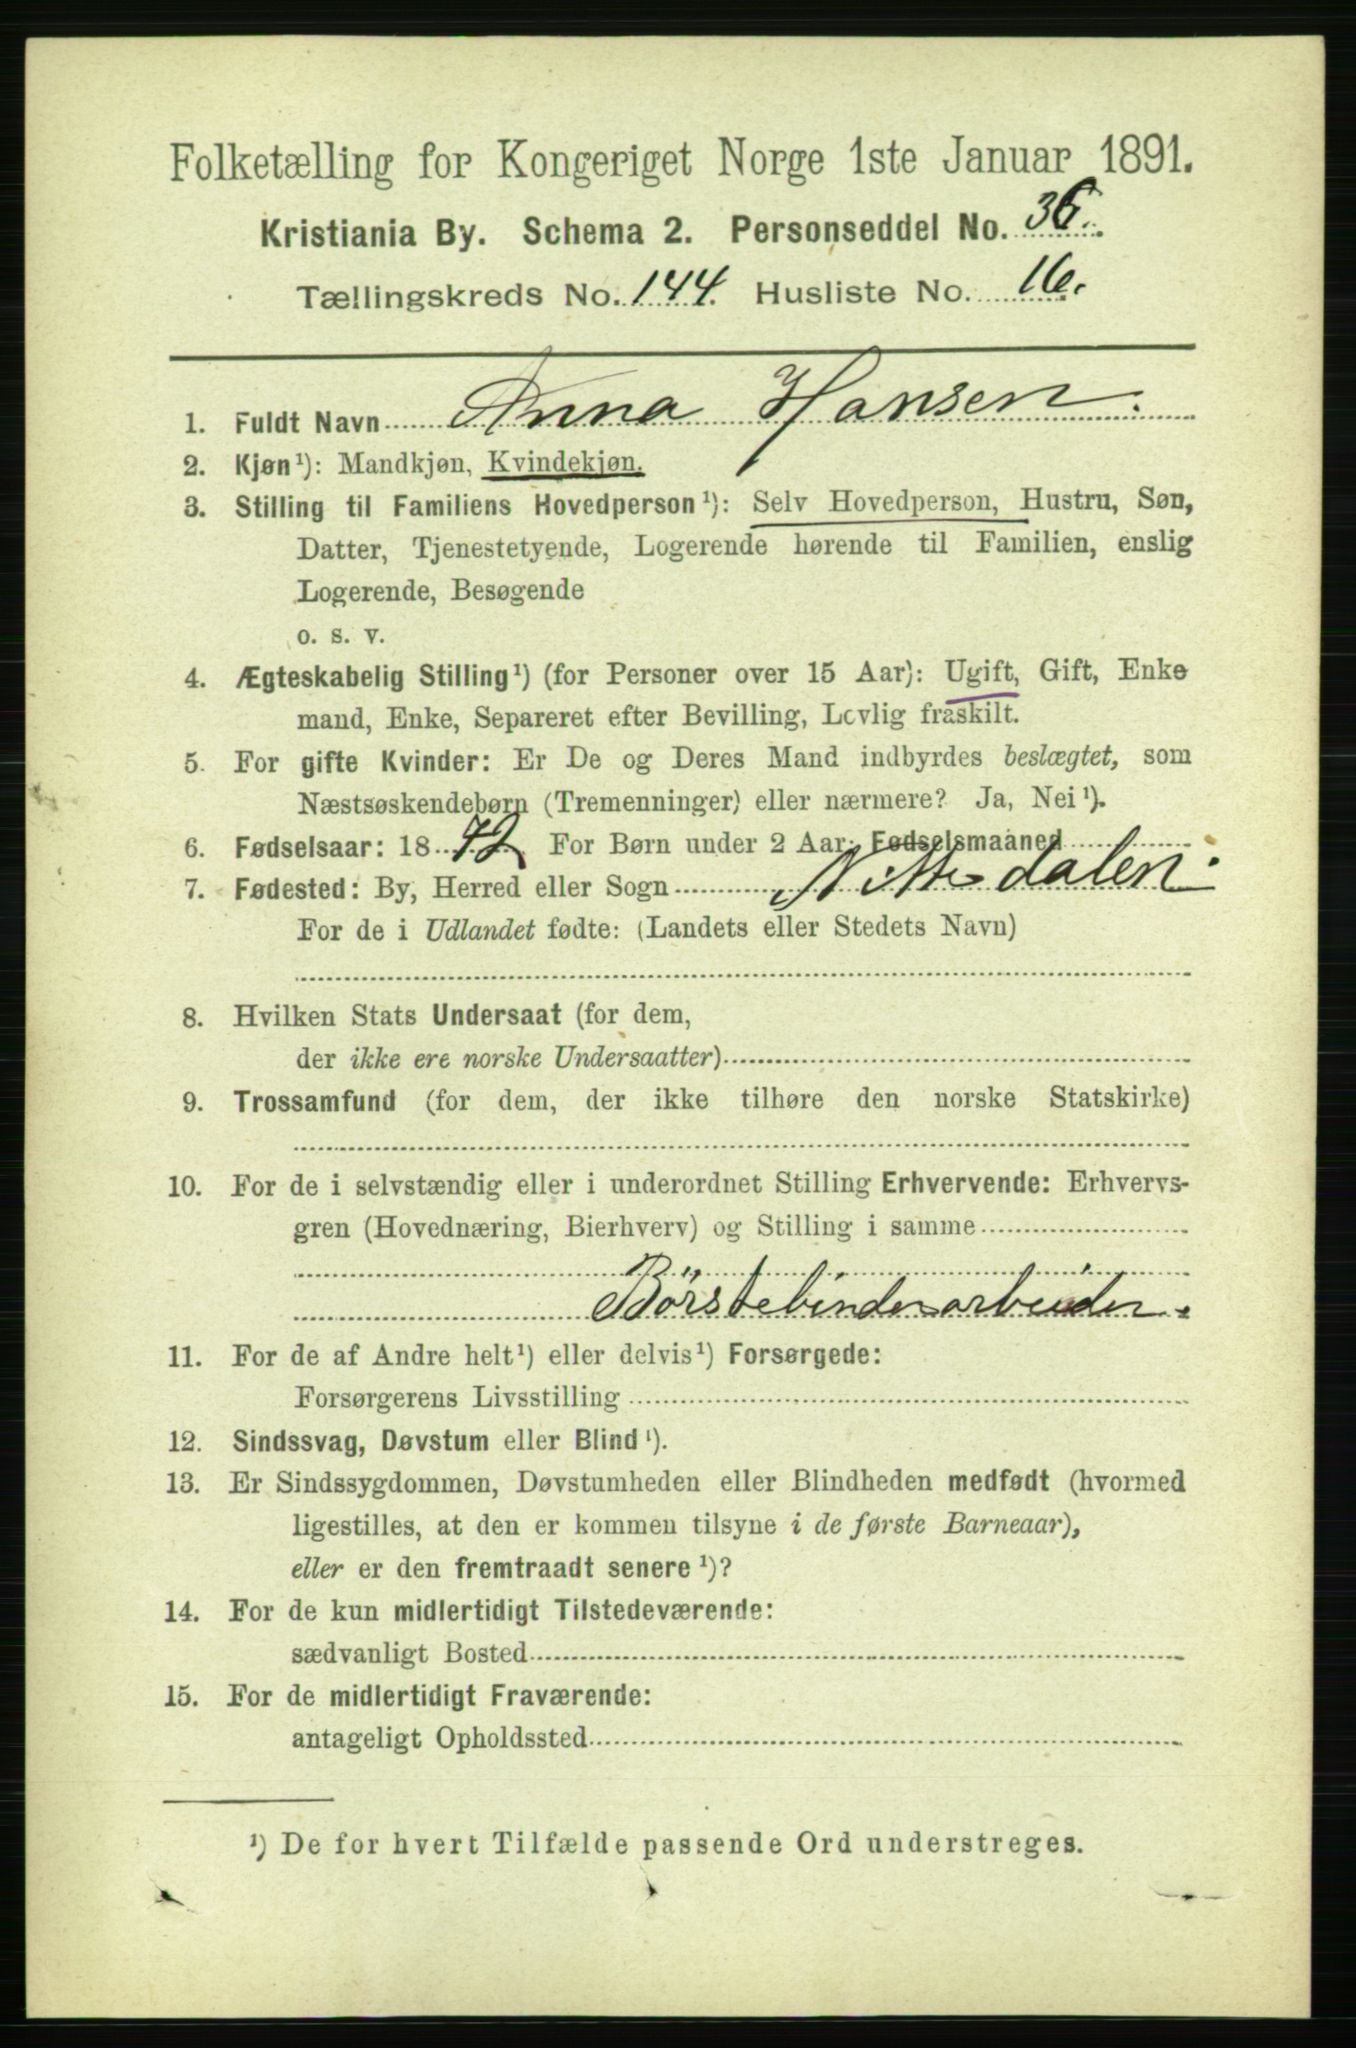 Folketælling for Kongeriget Norge 1ste Januar 1891.
Kristiania By. Schema 2. Personseddel No. 36.
Tællingskreds No. 144. Husliste No. 16.
1. Fuldt Navn Anna Hansen.
2. Kjøn¹): Mandkjøn, Kvindekjøn.
3. Stilling til Familiens Hovedperson¹): Selv Hovedperson, Hustru, Søn,
Datter, Tjenestetyende, Logerende hørende til Familien, enslig
Logerende, Besøgende
o. s. v.
4. Ægteskabelig Stilling¹) (for Personer over 15 Aar): Ugift, Gift, Enke
mand, Enke, Separeret efter Bevilling, Lovlig fraskilt.
5. For gifte Kvinder: Er De og Deres Mand indbyrdes beslægtet, som
Næstsøskendebørn (Tremenninger) eller nærmere? Ja, Nei¹).
6. Fødselsaar: 1872 For Børn under 2 Aar: Fødselsmaaned
7. Fødested: By, Herred eller Sogn Nittedalen.
For de i Udlandet fødte: (Landets eller Stedets Navn)
8. Hvilken Stats Undersaat (for dem,
der ikke ere norske Undersaatter)
9. Trossamfund (for dem, der ikke tilhøre den norske Statskirke)
10. For de i selvstændig eller i underordnet Stilling Erhvervende: Erhvervs-
gren (Hovednæring, Bierhverv) og Stilling i samme
Börstebinderarbeider.
11. For de af Andre helt¹) eller delvis¹) Forsørgede:
Forsørgerens Livsstilling
12. Sindssvag, Døvstum eller Blind¹).
13. Er Sindssygdommen, Døvstumheden eller Blindheden medfødt (hvormed
ligestilles, at den er kommen tilsyne i de første Barneaar),
eller er den fremtraadt senere¹)?
14. For de kun midlertidigt Tilstedeværende:
sædvanligt Bosted
15. For de midlertidigt Fraværende:
antageligt Opholdssted
¹) De for hvert Tilfælde passende Ord understreges.